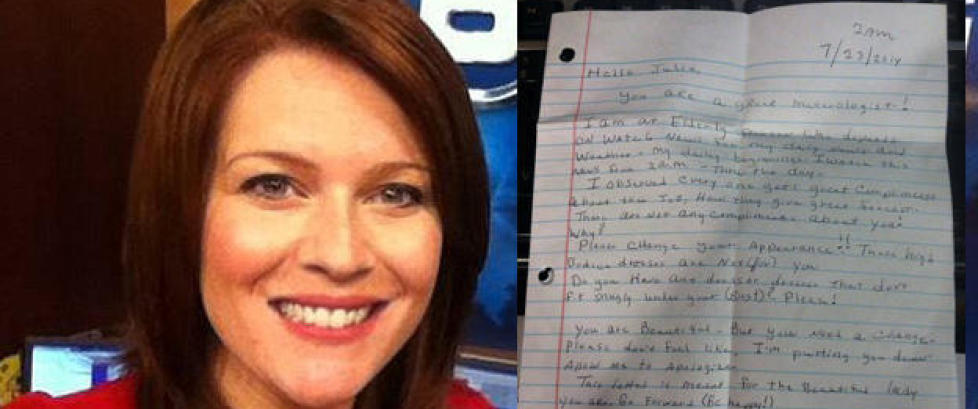 6
2am
7/27/2014
Hello Julie,
You are a great meterologist!
I am an Elderly who depends
on Watch 6 News for my daily and
Weather. My daily I watch this
news from 2am - Thru the day.
I observed Every one gets great Compliments
about the Job, How they give great
They are not any compliments about you!
Why?
Please Change your Appearance!! Those high
dresses are Not (for) you
Do you Have any dresses that don't
fit snugly under your (bust)? Please!
You are Beautiful - But you need a Change.
Please don't feel like I'm putting you down
Allow me to Apologize.
This letter is meant for the Beautiful lady
you are. Go Forward (Be happy!)